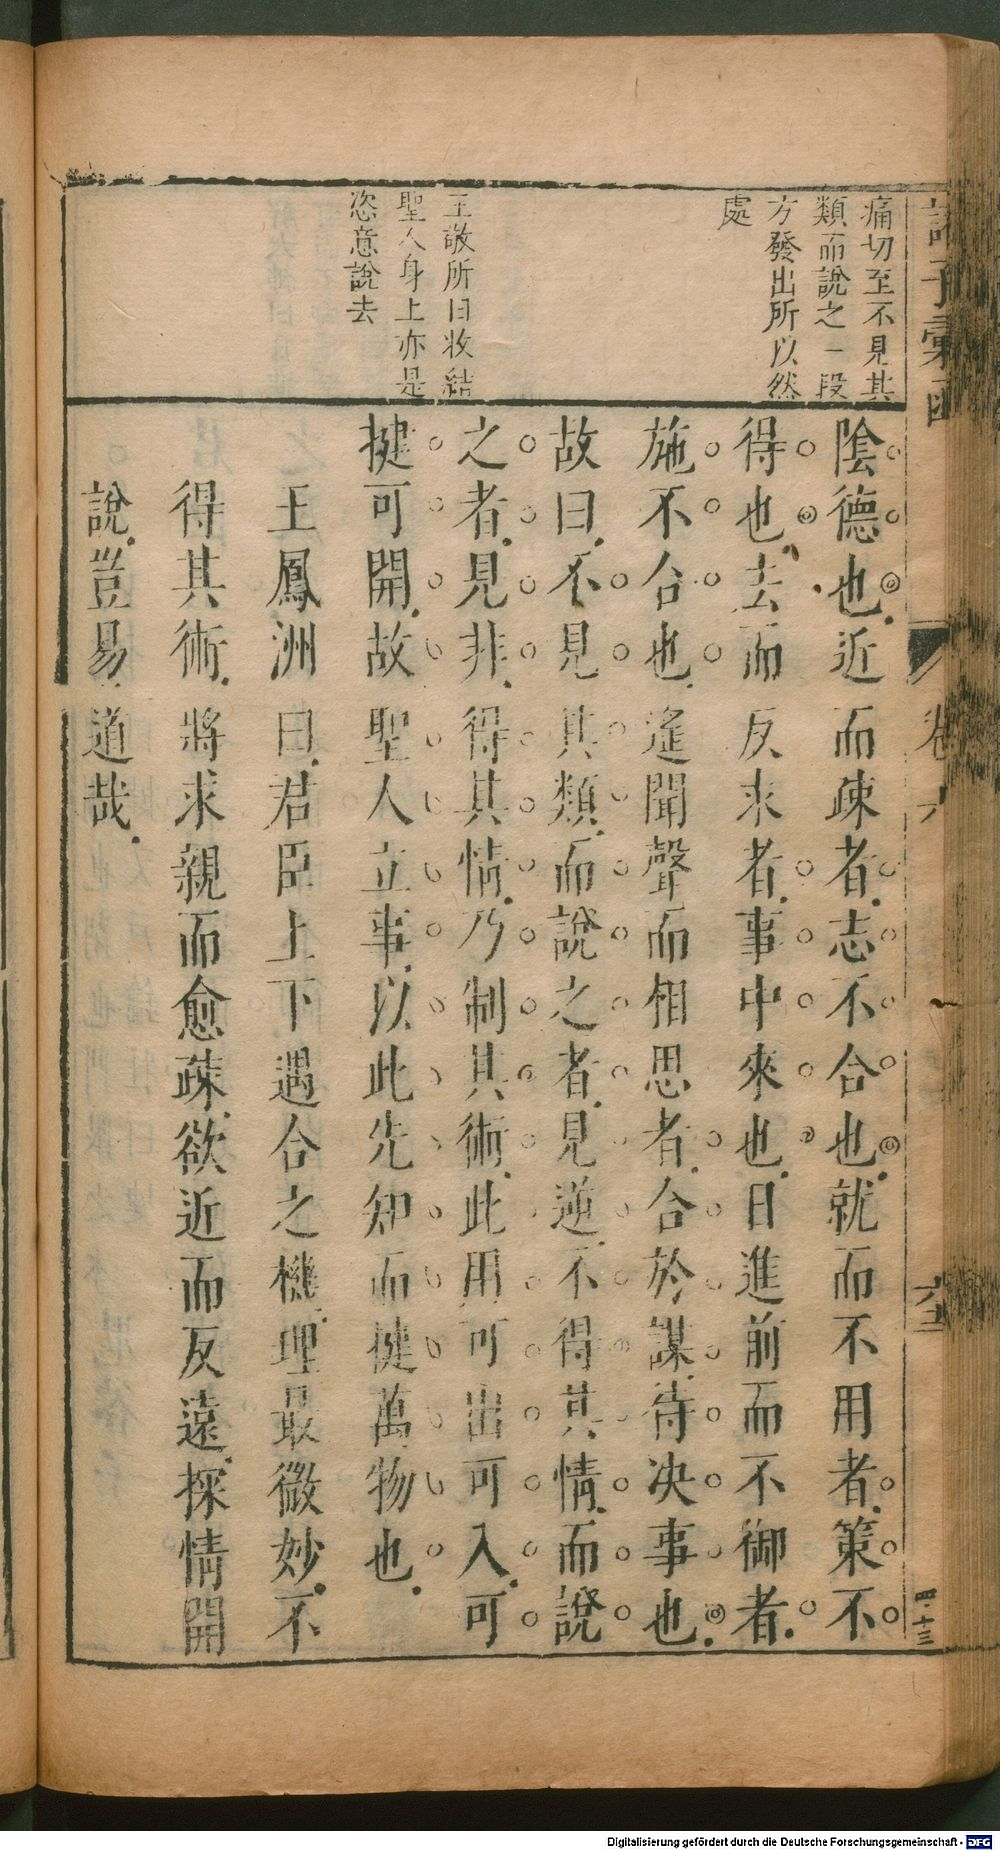 痛切至不見其
類而說之一段
方發出所以然
處
王敬所曰收結
聖人身上亦是
恣意說去
陰德也近而疎者志不合也就而不用者策不
得也去而反求者事中來也日進前而不御者
施不合也遙聞聲而相思者合於謀待决事也
故曰不見其類而說之者見逆不得其情而說
之者見非得其情乃制其術此用可出可入可
揵可開故聖人立事以此先知而揵萬物也
王鳳洲曰君臣上下遇合之機理最微妙不
得其術將求親而愈疎欲近而反遠探情開
說豈易道哉
卷六
四·十三
Digitalisierung gefördert durch die Deutsche Forschungsgemeinschaft - DFG